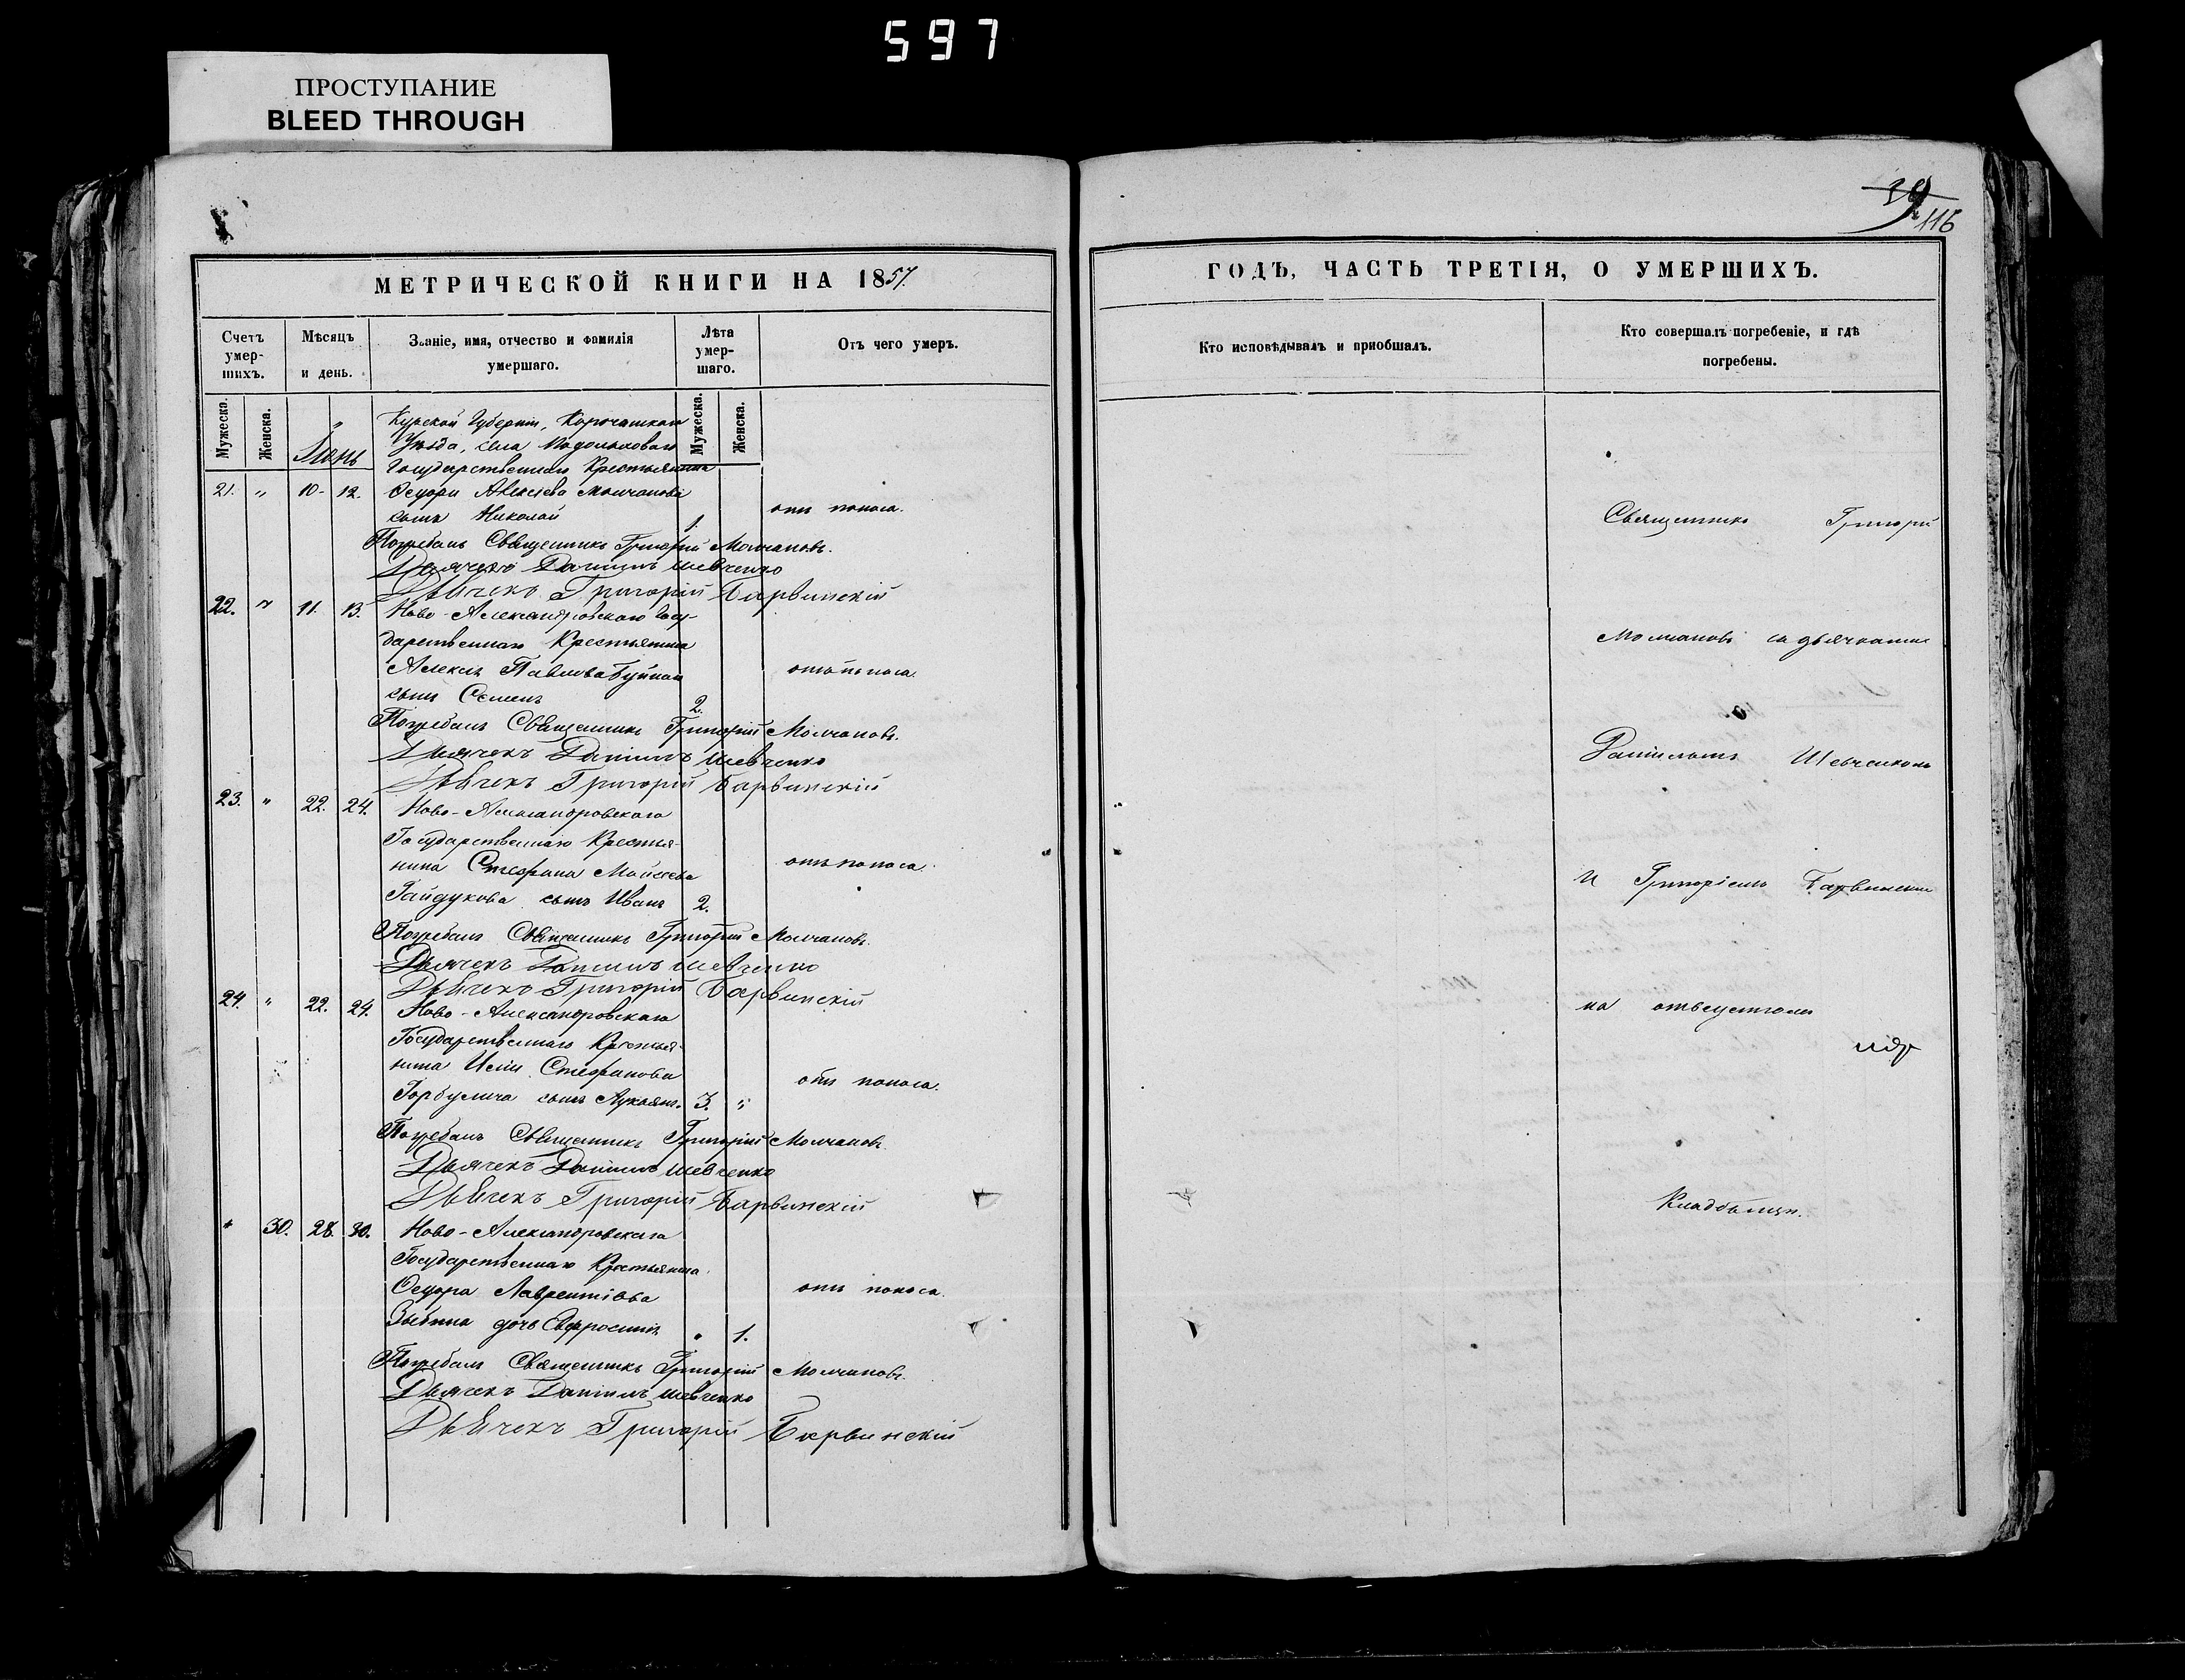 597
ПРОСТУПАНИЕ
BLEED THROUGH
39
116
МЕТРИЧЕСКОЙ КНИГИ НА 1857.
Счетъ умер-шихъ.
Мѣсяцъ и день.
Званіе, имя, отчество и фамилія умершаго.
Лѣта умер-шаго.
Отъ чего умеръ.
Мужеска.
Женска.
Мужеска.
Женска.
Іюнь
Курской Губерніи, Корочанскаго
Уѣзда, села
Государственнаго Крестьянина
21. " 10. 12. Ѳедора Алексѣева Молчанова
сынъ Николай 1. отъ поноса.
Погребалъ Священникъ Григорій Молчановъ.
Дьячекъ Даніилъ Шевченко
Дьячекъ Григорій Барвинскій
22. " 11. 13. Ново-Александровскаго Госу-
дарственнаго Крестьянина
Алексѣя Павлова отъ поноса.
сынъ Семенъ 2.
Погребалъ Священникъ Григорій Молчановъ.
Дьячекъ Даніилъ Шевченко
Дьячекъ Григорій Барвинскій
23. " 22. 24. Ново-Александровскаго
Государственнаго Крестья-
нина Стефана Моисеева отъ поноса.
Гайдукова сынъ Иванъ 2.
Погребалъ Священникъ Григорій Молчановъ.
Дьячекъ Даніилъ Шевченко
Дьячекъ Григорій Барвинскій
24. " 22. 24. Ново-Александровскаго
Государственнаго Крестья-
нина Стефанова отъ поноса.
сынъ Лукьянъ. 3. "
Погребалъ Священникъ Григорій Молчановъ.
Дьячекъ Даніилъ Шевченко
Дьячекъ Григорій Барвинскій
" 30. 28. 30. Ново-Александровскаго
Государственнаго Крестьянина
Ѳедора Лаврентіева отъ поноса.
дочь Евфросинія " 1.
Погребалъ Священникъ Григорій Молчановъ.
Дьячекъ Даніилъ Шевченко
Дьячекъ Григорій Барвинскій
ГОДЪ, ЧАСТЬ ТРЕТІЯ, О УМЕРШИХЪ.
Кто исповѣдывалъ и пріобщалъ.
Кто совершалъ погребеніе, и гдѣ погребены.
Священникъ Григорій
Молчановъ съ дьячками
Даніиломъ Шевченкомъ
и Григоріемъ Барвинскимъ
на
Кладбищѣ.